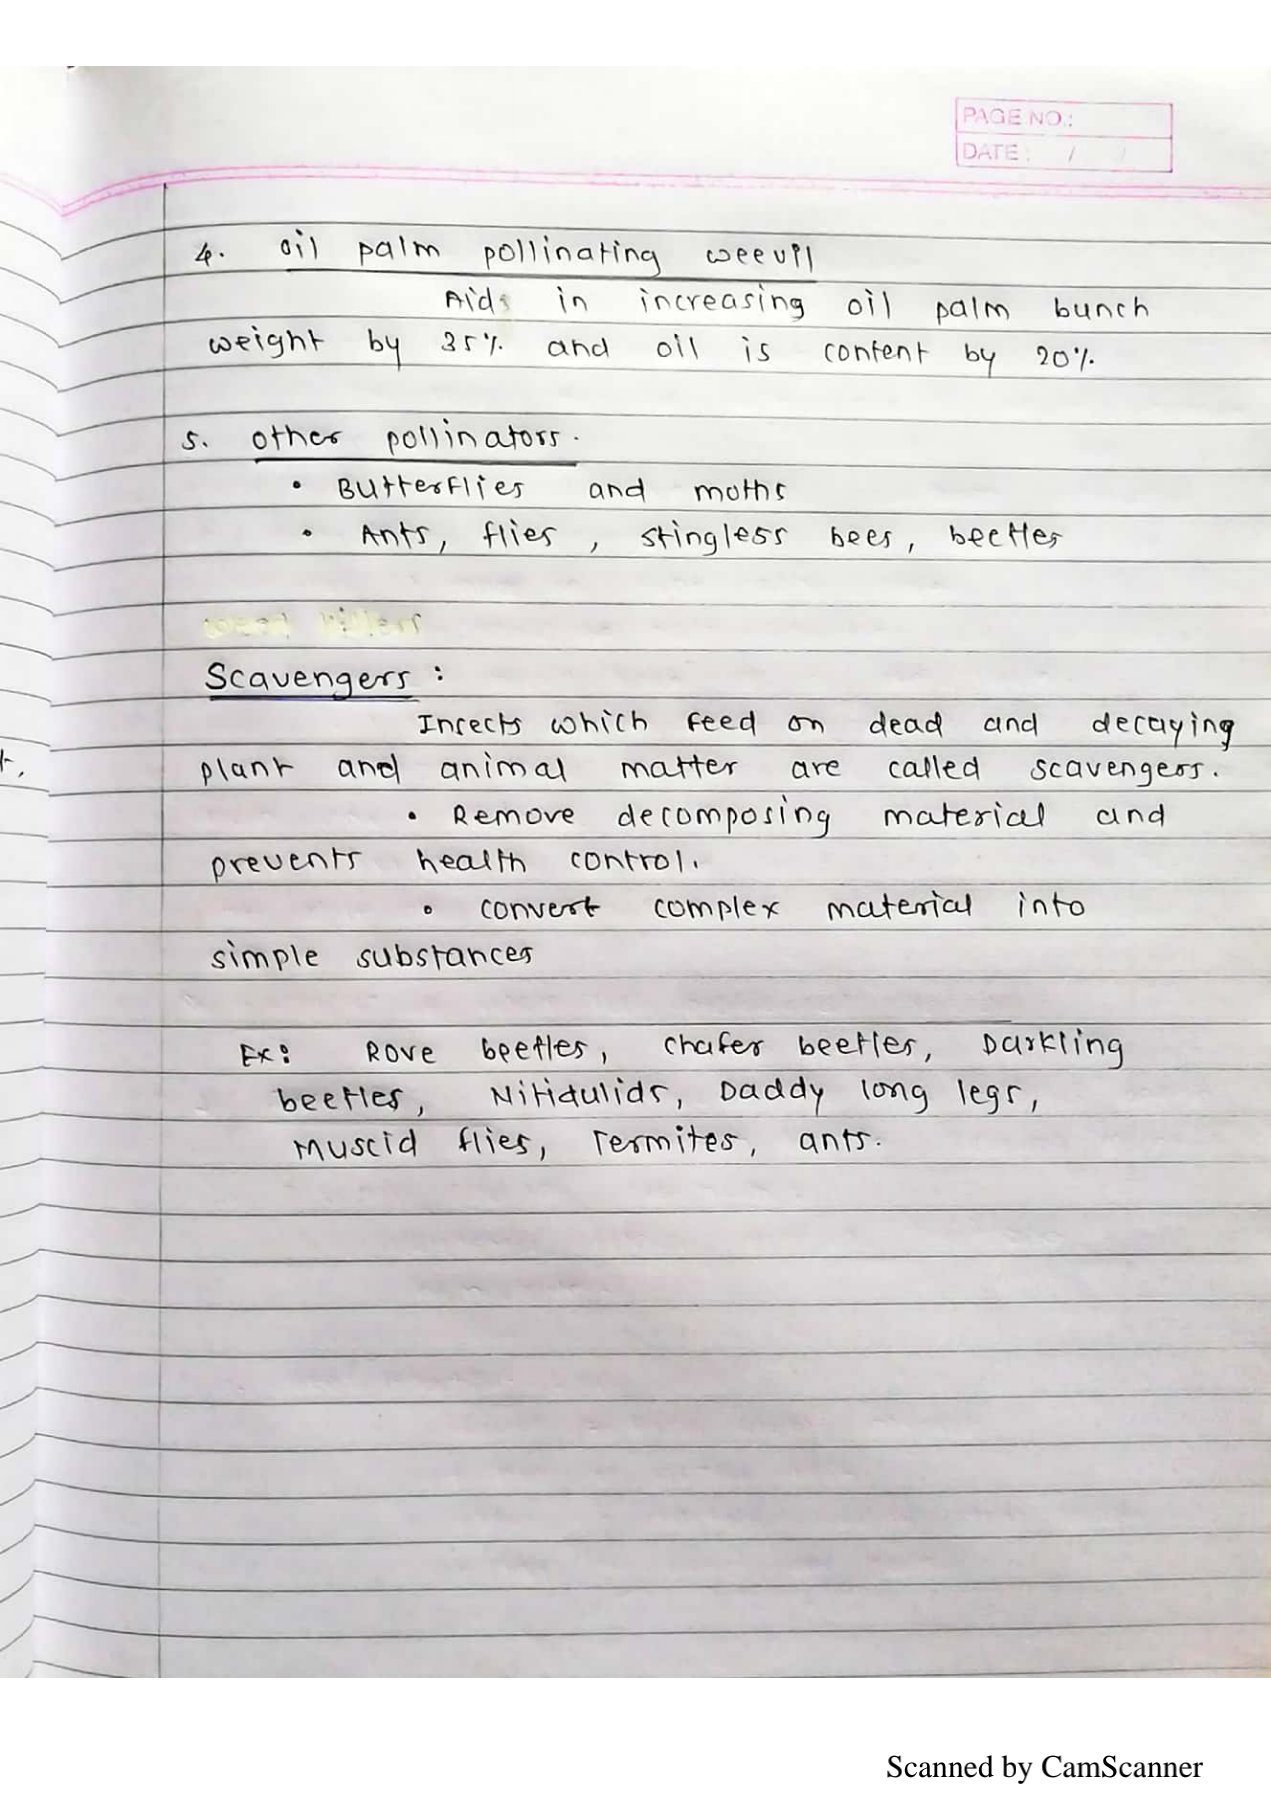 PAGE NO.:
DATE: / /
4. oil palm pollinating weevil
Aids in increasing oil palm bunch
weight by 35% and oil is content by 20%.
5. other pollinators.
• Butterflies and moths
• Ants, flies, stingless bees, beetles
weed killers
Scavengers :
Insects which feed on dead and decaying
t,
plant and animal matter are called scavengers.
• Remove decomposing material and
prevents health control.
• convert complex material into
simple substances
Ex: Rove beetles, chafer beetles, Darkling
beetles, Nitidulids, Daddy long legs,
Muscid flies, Termites, ants.
Scanned by CamScanner